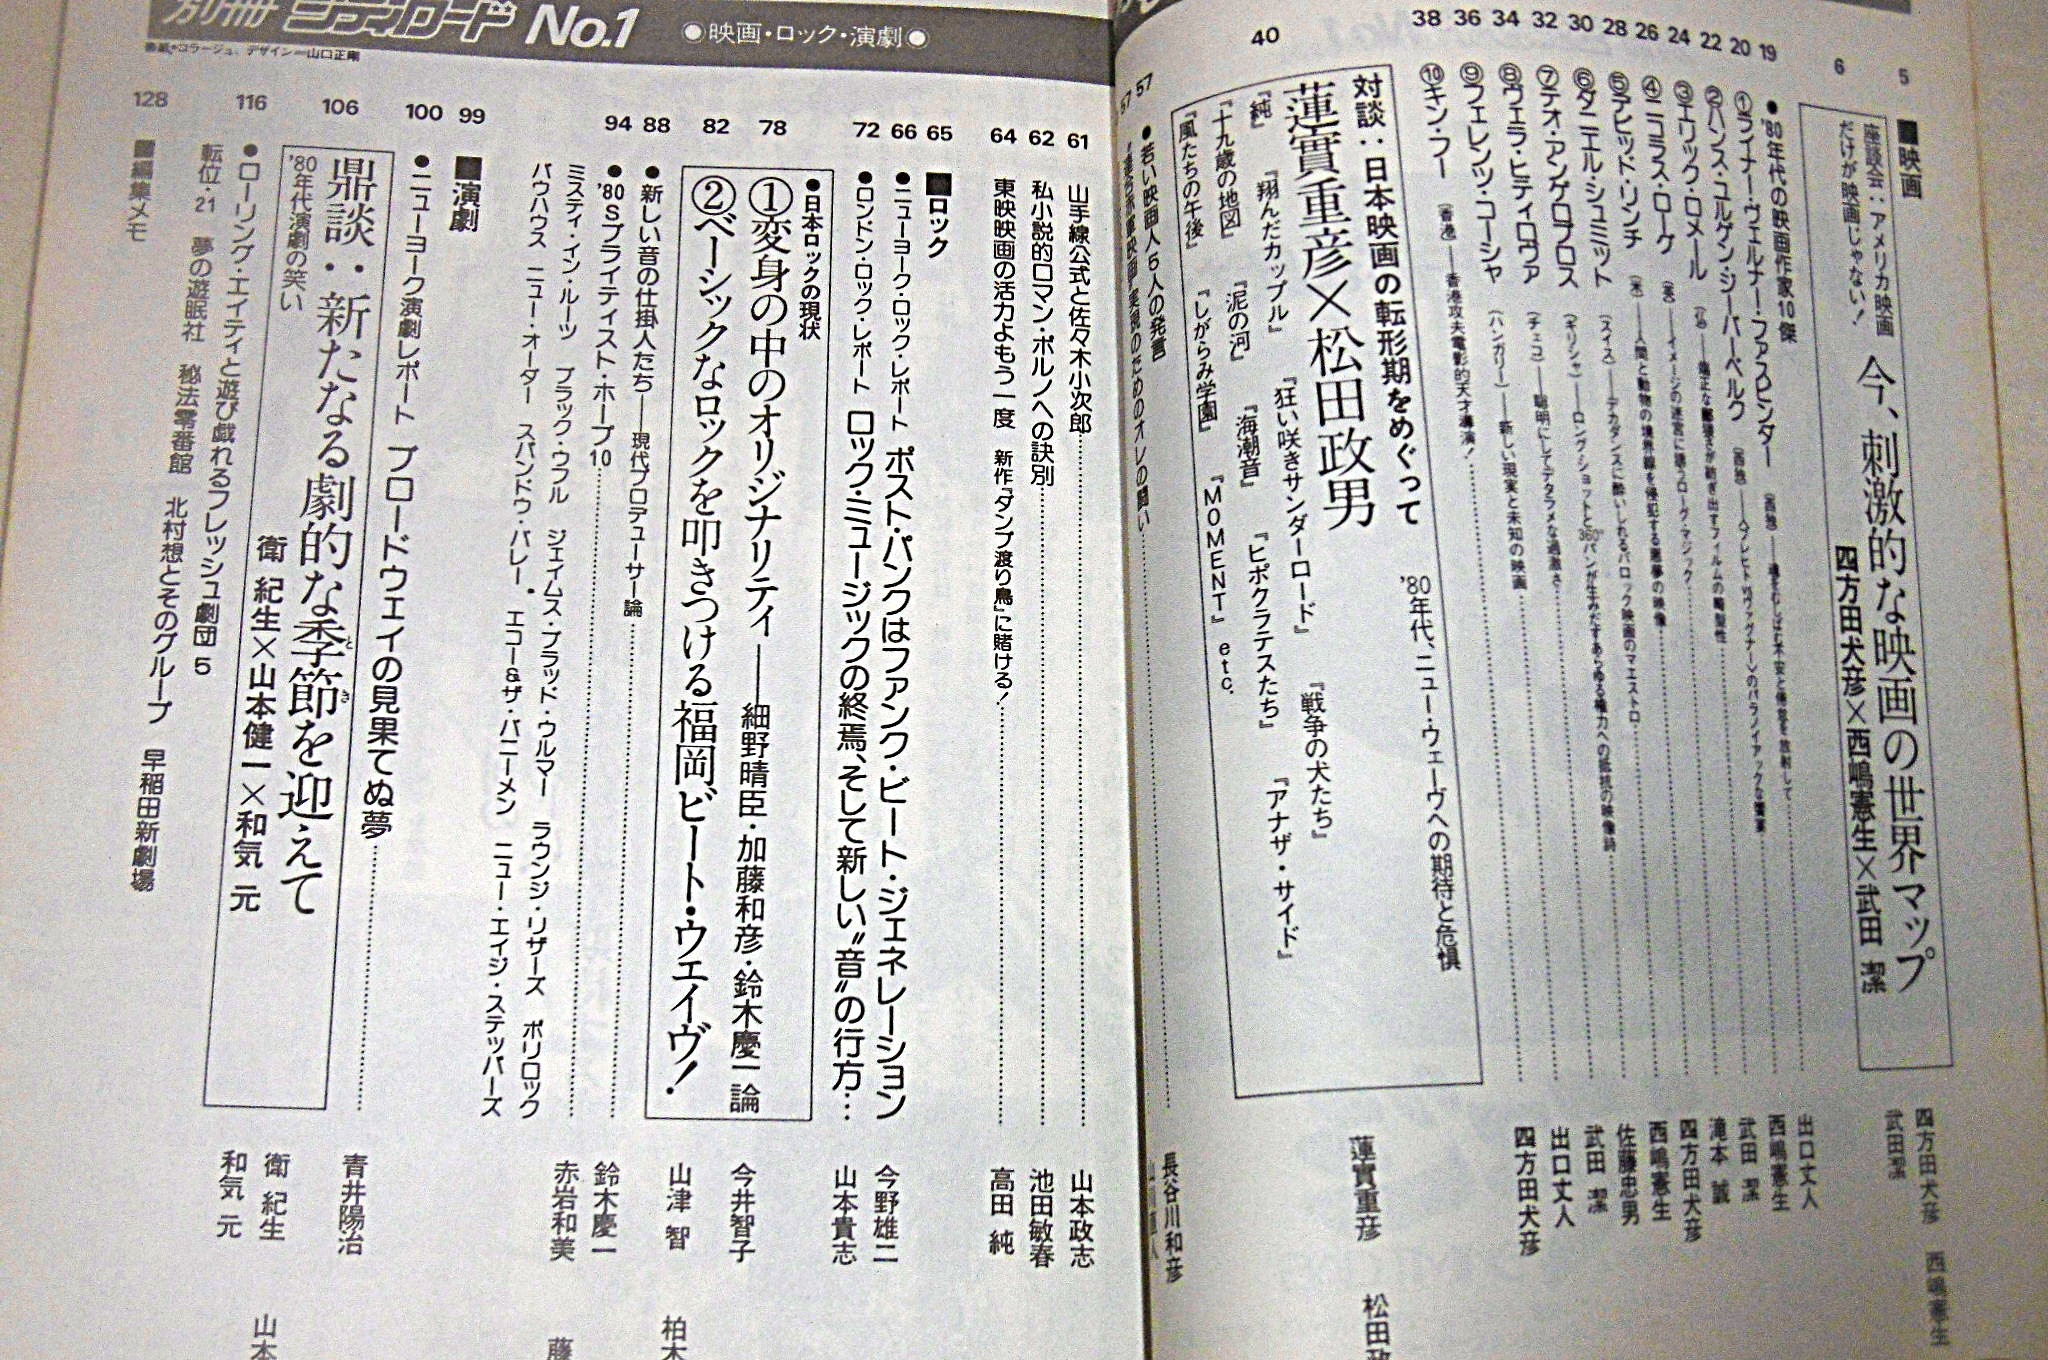 別冊シティロード No.1
◉映画・ロック・演劇◉
表紙・コラージュ、デザイン━山口正剛
5 ■映画
6 座談会：アメリカ映画だけが映画じゃない！
今、刺激的な映画の世界マップ
四方田犬彦×西嶋憲生×武田 潔
四方田犬彦 西嶋憲生
武田潔
●'80年代の映画作家10傑
19 ①ライナー・ヴェルナー・ファスビンダー
出口丈人
20 ②ハンス・ユルゲン・ジーバーベルク
西嶋憲生
22 ③エリック・ロメール
武田 潔
24 ④ニコラス・ローグ (英)━イメージの迷宮に誘うローグ・マジック
滝本 誠
26 ⑤デビッド・リンチ (米)━人間と動物の境界線を侵犯する悪夢の映像
四方田犬彦
28 ⑥ダニエル・シュミット (スイス)━デカダンスに酔いしれるバロック映画のマエストロ
西嶋憲生
30 ⑦テオ・アンゲロプロス (ギリシャ)━ロング・ショットと360°パンが生みだすあらゆる権力への抵抗の映像詩
佐藤忠男
32 ⑧ヴェラ・ヒティロヴァ (チェコ)━聡明にしてデタラメな過激さ
武田 潔
34 ⑨フェレンツ・コーシャ (ハンガリー)━新しい現実と未知の映画
出口丈人
36 ⑩キン・フー (香港)━香港攻夫電影的天才導演！
四方田犬彦
38
40 対談：日本映画の転形期をめぐって
'80年代、ニュー・ウェーヴへの期待と危惧
蓮實重彦×松田政男
『純』 『翔んだカップル』 『狂い咲きサンダーロード』 『戦争の犬たち』
『十九歳の地図』 『泥の河』 『海潮音』 『ヒポクラテスたち』 『アナザ・サイド』
『風たちの午後』 『しがらみ学園』 『MOMENT』 etc.
蓮實重彦 松田政
57 ●若い映画人5人の発言
57 実現のためのオレの闘い
長谷川和彦
61 山手線公式と佐々木小次郎
山本政志
62 私小説的ロマン・ポルノへの訣別
池田敏春
64 東映映画の活力よもう一度 新作『ダンプ渡り鳥』に賭ける！
高田 純
65 ■ロック
66 ●ニューヨーク・ロック・レポート ポスト・パンクはファンク・ビート・ジェネレーション
今野雄二
72 ●ロンドン・ロック・レポート ロック・ミュージックの終焉、そして新しい〝音〟の行方…
山本貴志
●日本ロックの現状
78 ①変身の中のオリジナリティ━━細野晴臣・加藤和彦・鈴木慶一論
今井智子
82 ②ベーシックなロックを叩きつける福岡ビート・ウエイヴ！
山津 智 柏木
88 ●新しい音の仕掛人たち━━現代プロデューサー論
鈴木慶一
94 ●'80Sブライティスト・ホープ10
赤岩和美 藤
ミスティ・イン・ルーツ ブラック・ウフル ジェイムス・ブラッド・ウルマー ラウンジ・リザーズ ポリロック
バウハウス ニュー・オーダー スパンドウ・バレー・ エコー&ザ・バニーメン ニュー・エイジ・ステッパーズ
99 ■演劇
100 ●ニューヨーク演劇レポート ブロードウエイの見果てぬ夢
青井陽治
106 鼎談：新たなる劇的な季節(とき)を迎えて
'80年代演劇の笑い
衛 紀生×山本健一×和気 元
衛 紀生 山本
和気 元
116 ●ローリング・エイティと遊び戯れるフレッシュ劇団5
転位・21 夢の遊眠社 秘法零番館 北村想とそのグループ 早稲田新劇場
128 ■編集メモ